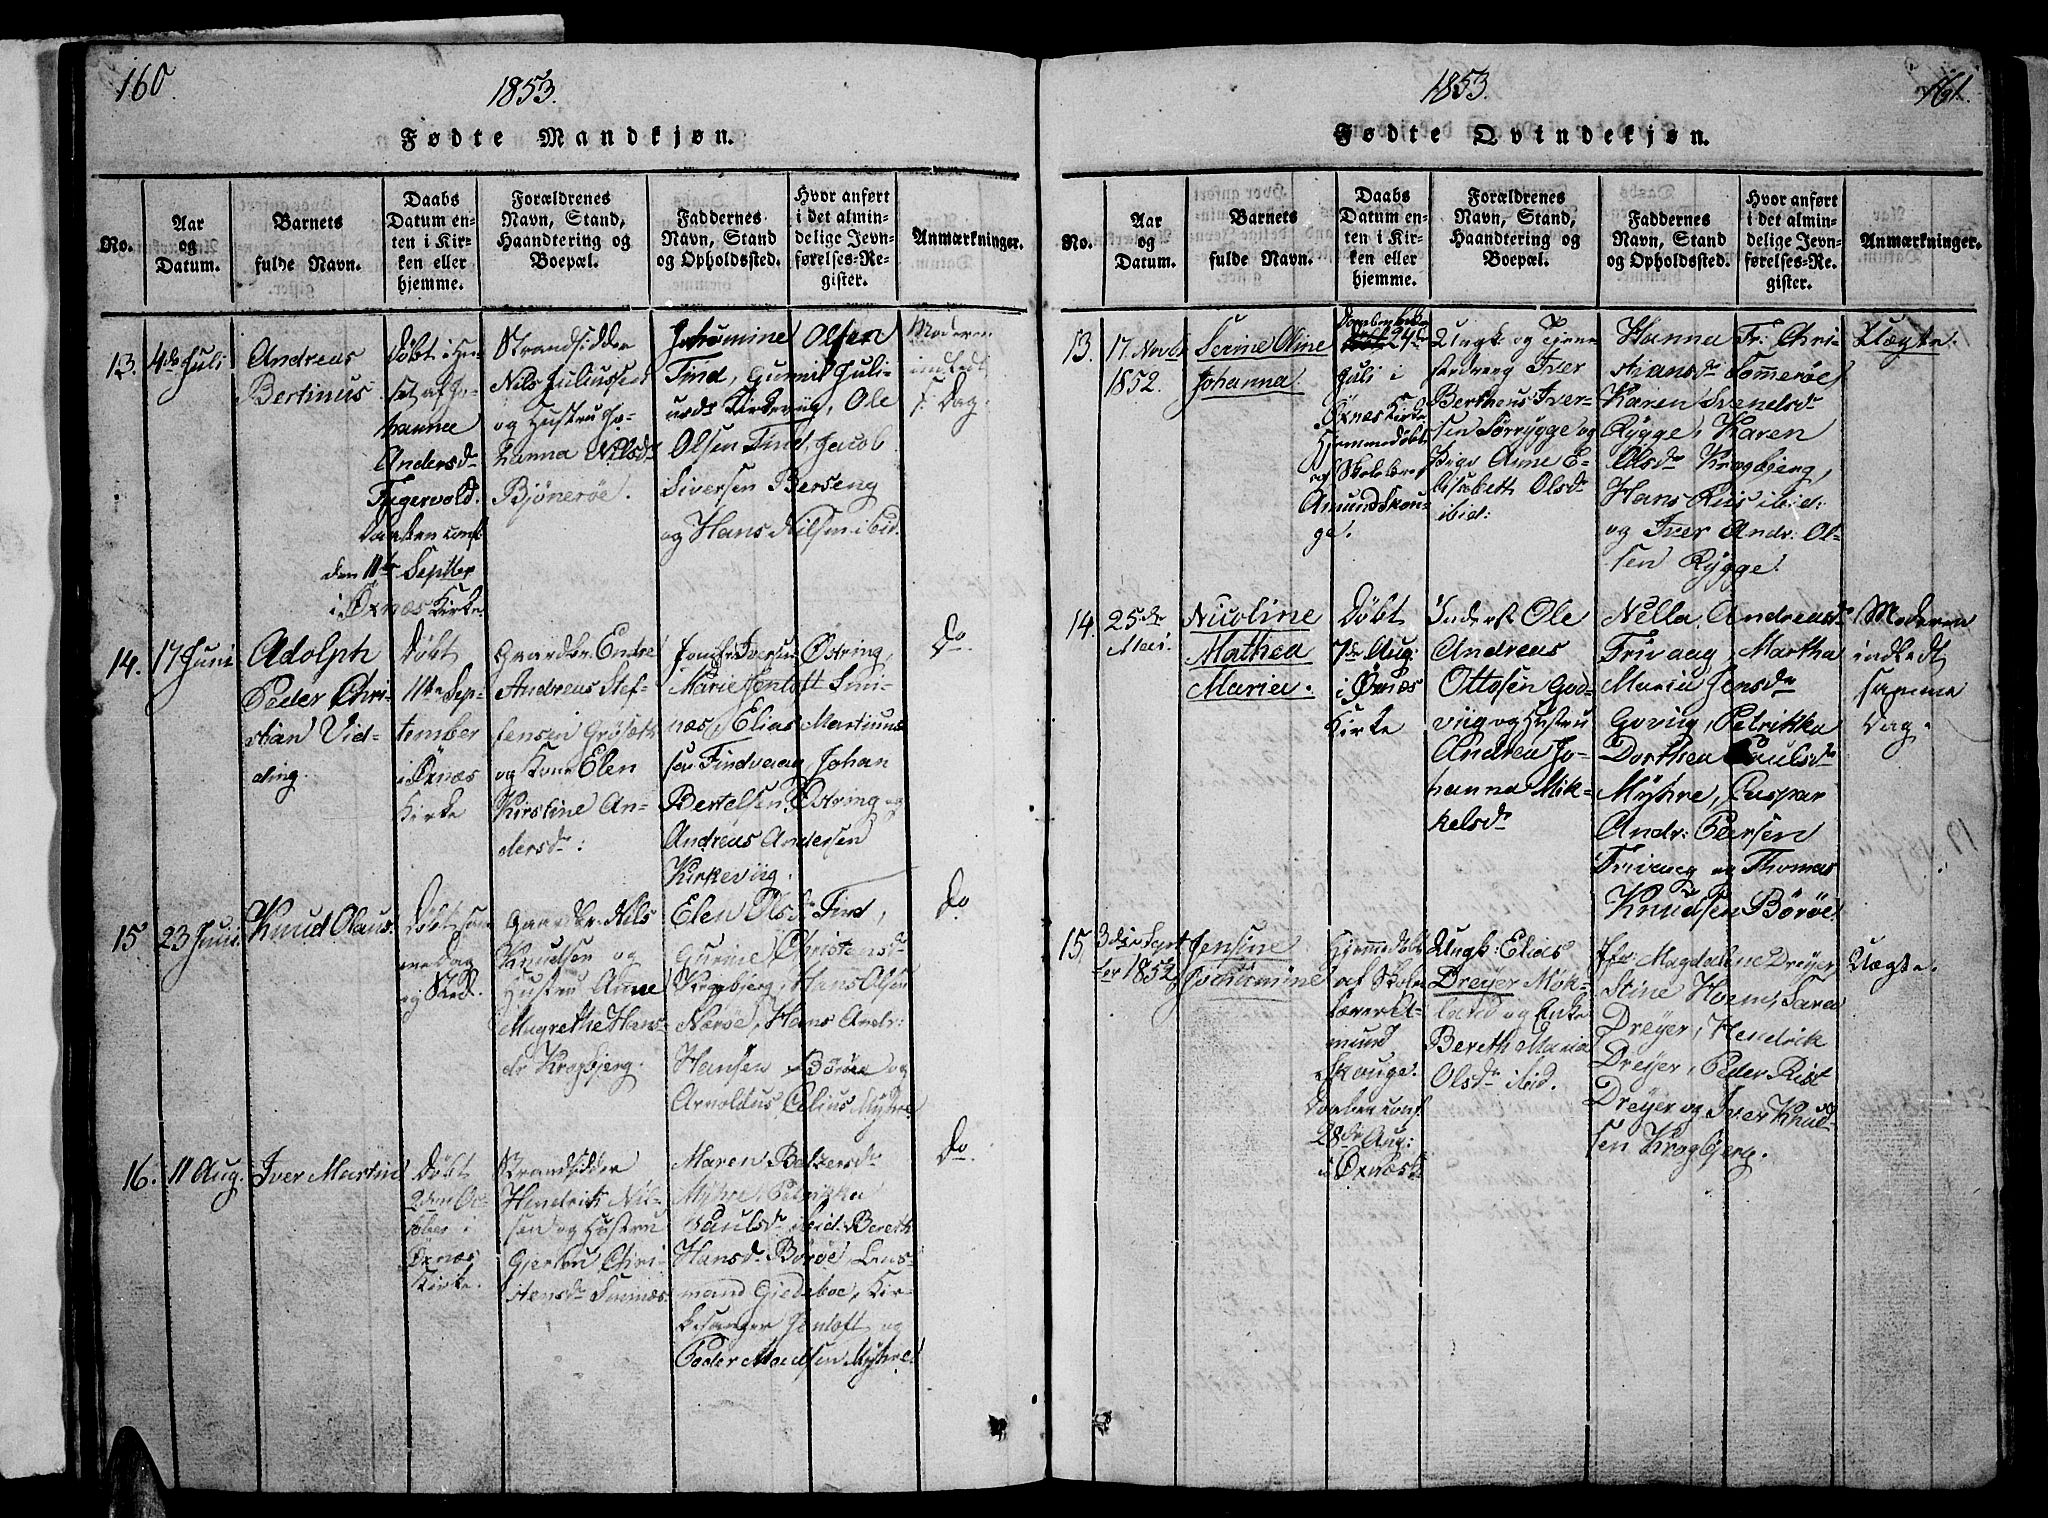 160
1853.
Fødte Mandkjøn.
No.
Aar
og
Datum.
Barnets
fulde Navn.
Daabs
Datum en-
ten i Kir-
ken eller
hjemme.
Forældrenes
Navn, Stand,
Haandtering og
Boepæl.
Faddernes
Navn, Stand
og Opholdssted.
Hvor anført
i det almin-
delige Jevn-
førelses-Re-
gister.
Anmærkninger.
13.
4de Juli
Andreas
Bertinus
Døbt i Hu-
set af Jo-
hanna
Andersdr
Tugervold.
Daaben conf.
den 11te Septber
i Øxnæs Kirke.
Strandsidder
Nils Juliussen
og Hustru Jo-
hanna Nilsdr
Bjønerøe.
Johannine Olsen
Tind, Gurnil Juli-
usdr Kirkeviig, Ole
Olsen Tind, Jacob
Siversen Berseng
og Hans Nilsen ibid.
Moderen
indledt
s. Dag.
14.
17 Juni
Adolph
Peder Chri-
stian Vid-
ding.
Døbt
11te Sep-
tember
i Øxnæs
Kirke
Gaardbr. Endre
Andreas Stef-
fensen Grøseth
og Kone Elen
Kirstine An-
dersdr:
Jomfr. Iversen Østring,
Marie Jentoft Smi-
næs, Elias Martinus-
sen Tindvaag, Johan
Bertelsen Østring og
Andreas Andersen
Kirkeviig.
Do
15
23 Juni
Knud Olaus
Døbt sam-
me Dag
og Sted.
Gaardbr. Nils
Knudsen og
Hustru Anne
Magrethe Hans-
dr Krogbjerg.
Elen Olsdr Tind,
Gurine Christensdr
Krogbjerg, Hans Olsen
Nærøe, Hans Andr:
Hansen Børøe og
Arnoldus Celius Myhre
Do
16.
11 Aug.
Iver Martin
Døbt
2den Oc-
tober i
Øxnæs
Kirke.
Strandsidder
Hendrik Nil-
sen og Hustru
Gjertru Chri-
stensdr Smines
Maren Baltzersdr
Myhre, Petrikka
Paulsdr ibid. Bereth
Hansdr Børøe, Lens-
mand Gjedeboe, Kir-
kesanger Jentoft og
Peder Madsen Myhre.
Do
1853.
161.
Fødte Qvindekjøn.
No.
Aar
og
Datum.
Barnets
fulde Navn.
Daabs
Datum en-
ten i Kir-
ken eller
hjemme.
Forældrenes
Navn, Stand,
Haandtering og
Boepæl.
Faddernes
Navn, Stand
og Opholdssted.
Hvor anført
i det almin-
delige Jevn-
førelses-Re-
gister.
Anmærkninger.
13.
17. Novbr
1852.
Serine Oline
Johanna.
Daaben bekr.
24de
Juli i
Øxnes Kirke
Hjemmedøbt
af Skolelærer
Amund Skou-
ge.
Ungk. og Tjene-
stedreng Iver
Bertheus Iver-
sen Sørrygge og
Pige Anne E-
lisabeth Olsdr
ibid:
Hanna Fr: Chri-
stiansdr Sommerøe
Karen Svenelsdr
Rygge, Karen
Olsdr Krogbjerg,
Hans Ruis ibid:
og Iver Andr: Ol-
sen Rygge.
Uægte.
14.
25de
Mai.
Nicoline
Mathea
Maria.
Døbt
7de Aug:
i Øxnæs
Kirke
Inderst Ole
Andreas
Ottosen God-
viig og Hustru
Andrea Jo-
hanna Mik-
kelsdr
Nella Andreasdr
Frivaag, Martha
Maria Jensdr
Goviig, Petrikka
Dorthea Paulsdr
Myhre, Caspar
Andr: Peersen
Frivaag og Thomas
Knudsen Børøe.
Moderen
indledt
samme
Dag.
15.
1852
Jensine
Johannine
Hjemmedøbt
af Skole-
lærer A-
mund
Skauge.
Daaben conf.
28de Aug:
i Øxnæs K.
Ungk: Elias
Dreyer Mok-
land og Enke
Bereth Maria
Olsdr ibid.
Magdalene Dreyer
Stine Horn, Sara
Dreyer, Hendrik
Dreyer, Peder Rist
Dreyer og Iver Knud-
sen Krogbjerg.
Uægte.